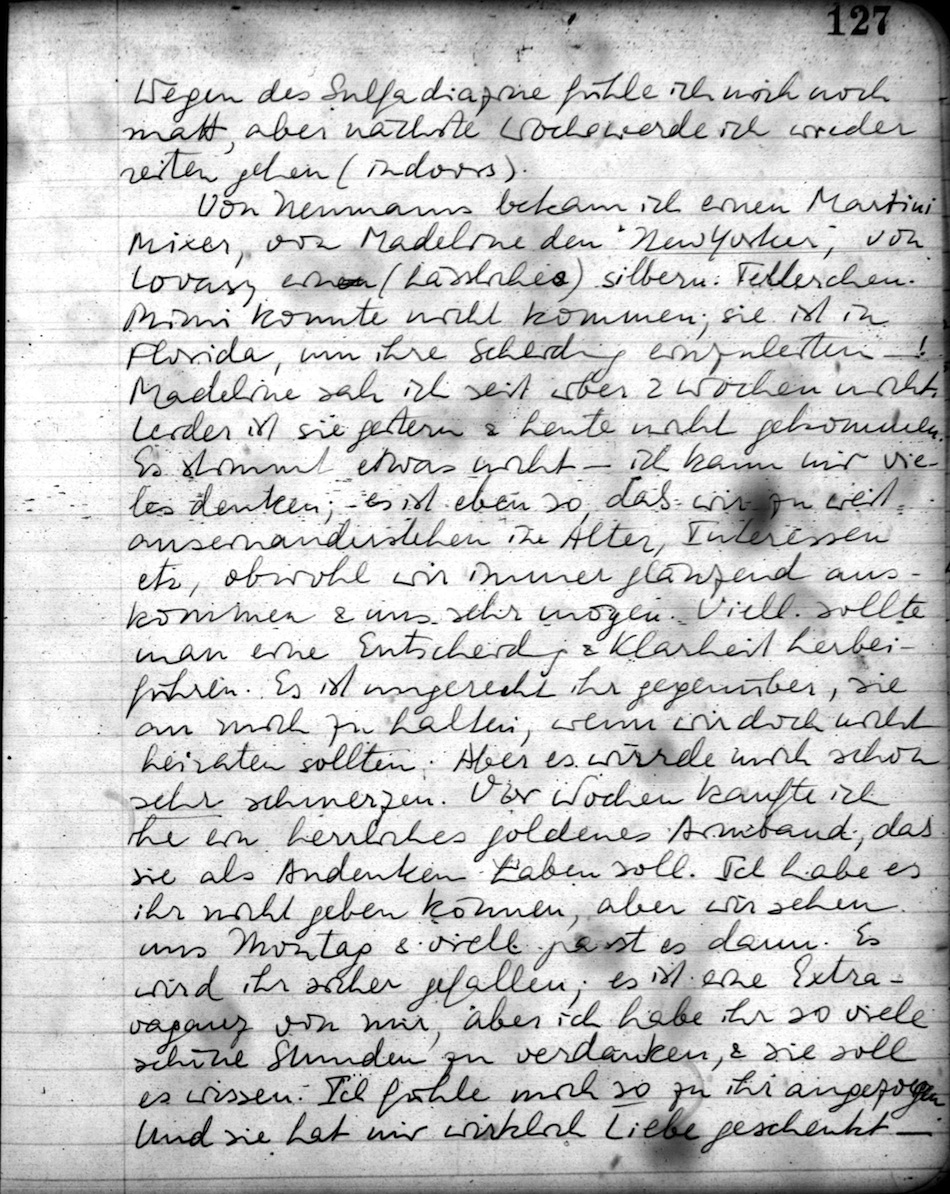 127
Wegen des Sulfadiazine fühle ich mich noch
matt, aber nächste Woche werde ich wieder
reiten gehen (indoors).
Von Neumanns bekam ich einen Martini
Mixer, von Madeline den "New Yorker", von
Lovasz ein (hässliches) silbern. Tellerchen.
Mimi konnte nicht kommen; sie ist in
Florida, um ihre Scheidg einzuleiten —!
Madeline sah ich seit über 2 Wochen nicht.
Leider ist sie gestern & heute nicht gekommen.
Es stimmt etwas nicht — ich kann mir vie-
les denken; – es ist eben so, das wir zu weit
auseinanderstehen in Alter, Interessen
etc, obwohl wir immer glänzend aus-
kommen & uns sehr mögen. Viell. sollte
man eine Entscheidg & Klarheit herbei-
führen. Es ist ungerecht ihr gegenüber, sie
an mich zu halten, wenn wir doch nicht
heiraten sollten. Aber es würde mich schon
sehr schmerzen. Vor Wochen kaufte ich
ihr ein herrliches goldenes Armband, das
sie als Andenken haben soll. Ich habe es
ihr nicht geben können, aber wir sehen
uns Montag & viell. passt es dann. Es
wird ihr sicher gefallen; es ist eine Extra-
vaganz von mir, aber ich habe ihr so viele
schöne Stunden zu verdanken, & sie soll
es wissen. Ich fühle mich so zu ihr angezogen
Und sie hat mir wirklich Liebe geschenkt —